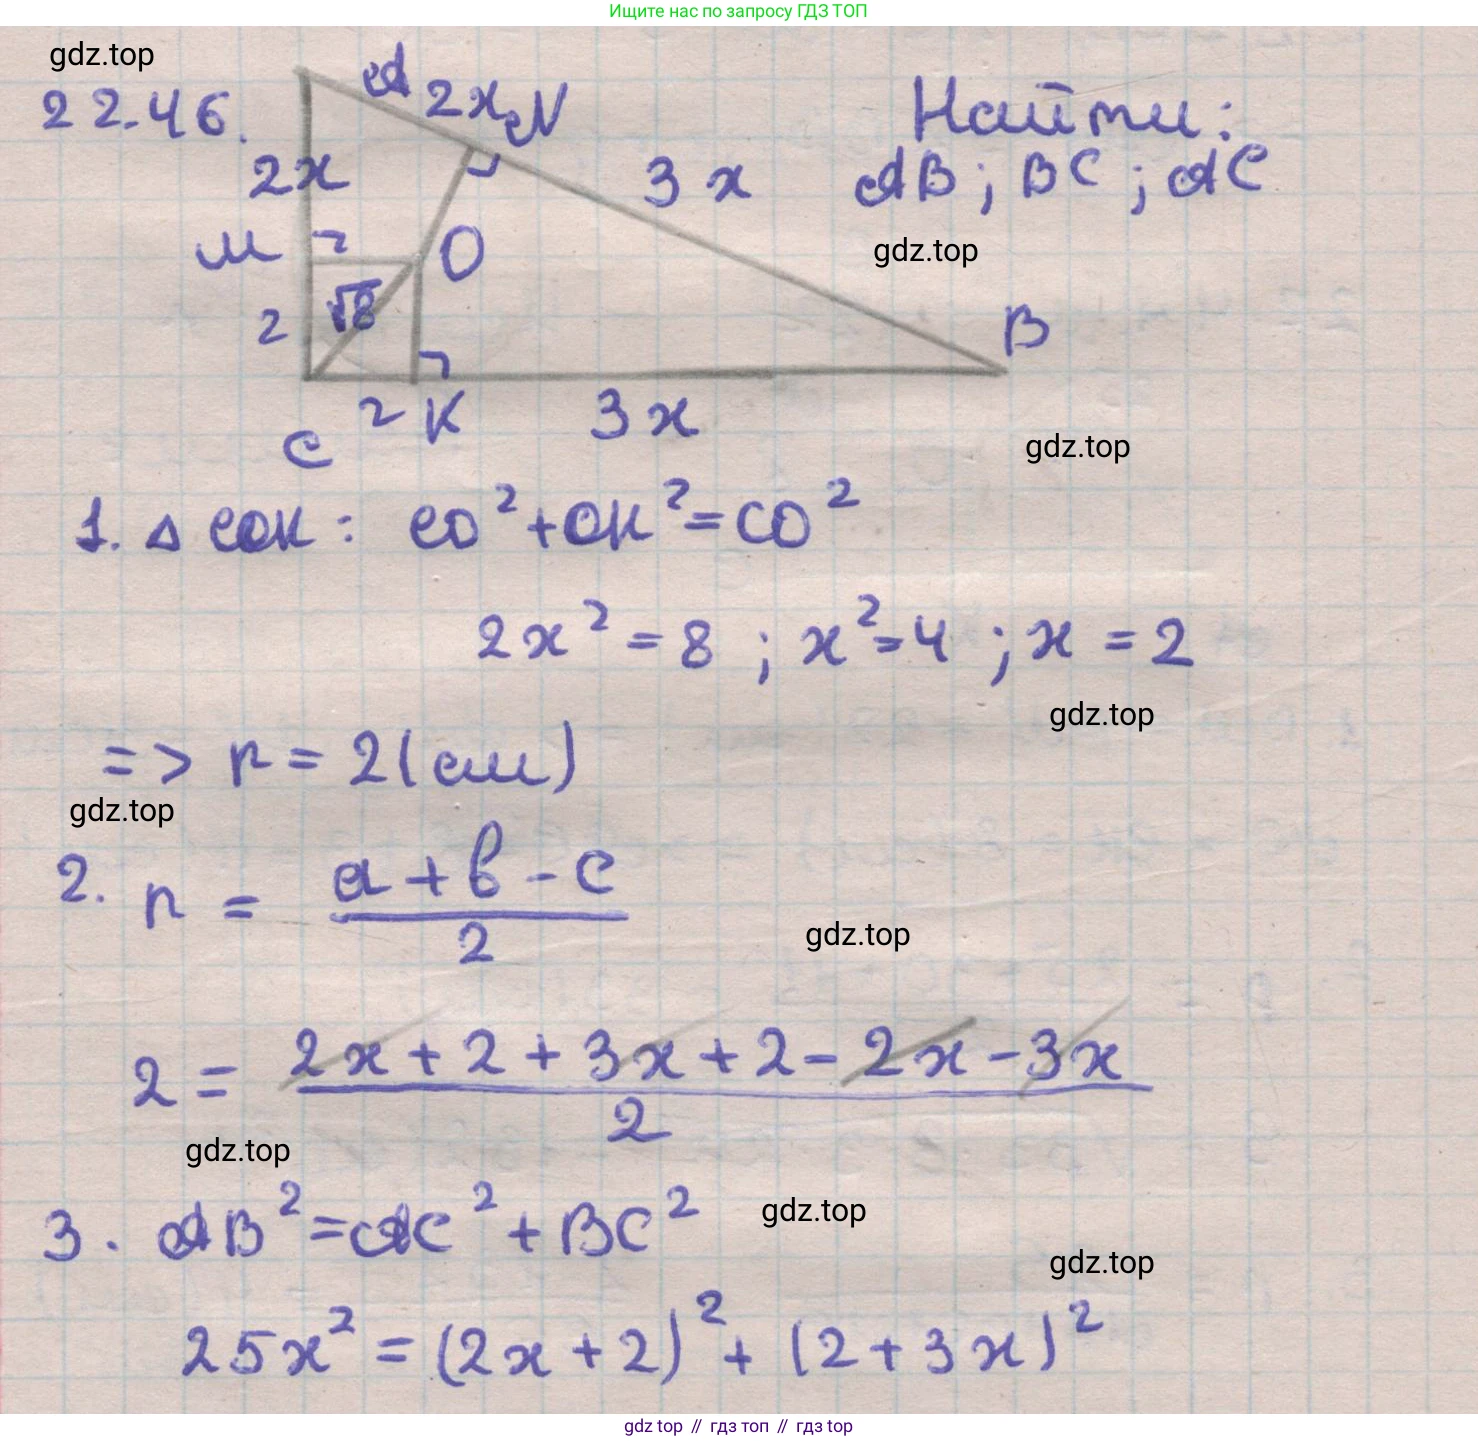 Ищите нас по запросу ГДЗ ТОП
gdz.top
22.46.
A
2x
N
Найти:
2x
3x
AB; BC; AC
M
O
gdz.top
√8
2
B
2
K
3x
C
gdz.top
1. △ COK: CO² + OK² = CO²
2x² = 8 ; x² = 4 ; x = 2
gdz.top
=> r = 2 (см)
gdz.top
2. r = (a + b - c) / 2
gdz.top
2 = (2x + 2 + 3x + 2 - 2x - 3x) / 2
gdz.top
3. AB² = AC² + BC²
gdz.top
gdz.top
25x² = (2x + 2)² + (2 + 3x)²
gdz.top // гдз топ // gdz top